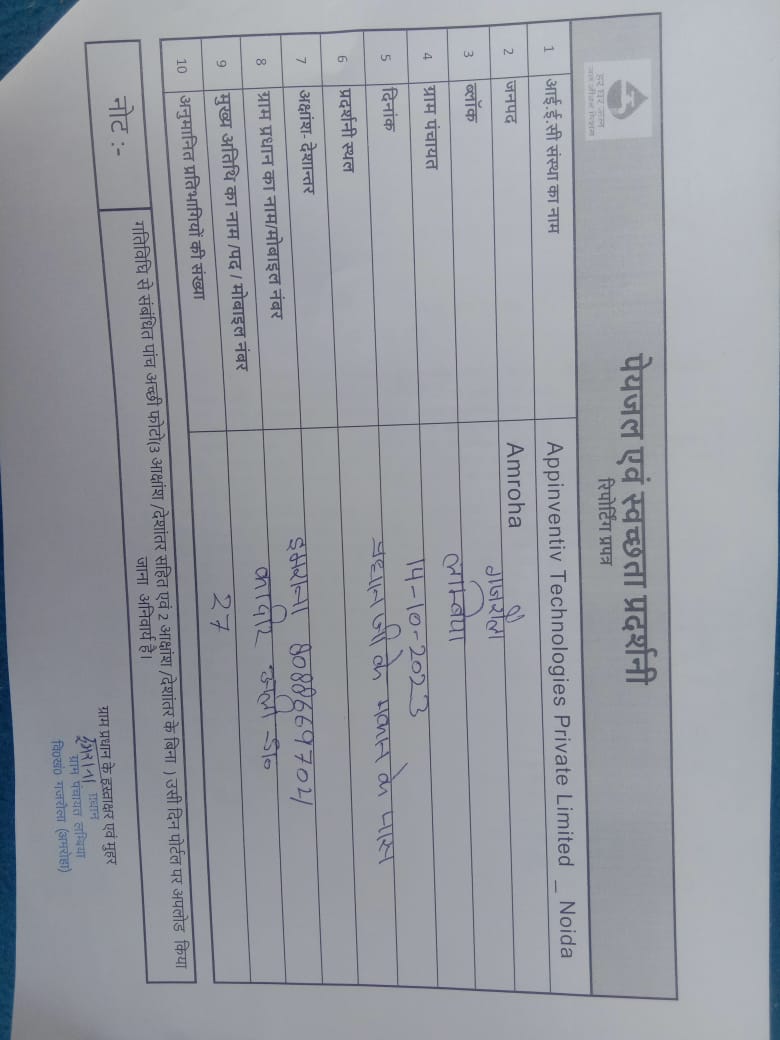 हर घर जल
जल जीवन मिशन
पेयजल एवं स्वच्छता प्रदर्शनी
रिपोर्टिंग प्रपत्र
1 आई.ई.सी संस्था का नाम Appinventiv Technologies Private Limited _ Noida
2 जनपद Amroha
3 ब्लॉक गजरौला
4 ग्राम पंचायत
5 दिनांक 14-10-2023
6 प्रदर्शनी स्थल प्रधान जी के मकान के पास
7 अक्षांश- देशान्तर
8 ग्राम प्रधान का नाम/मोबाइल नंबर इमराना
9 मुख्य अतिथि का नाम /पद / मोबाइल नंबर
10 अनुमानित प्रतिभागियों की संख्या 27
नोट :- गतिविधि से संबंधित पांच अच्छी फोटो(3 आक्षांश /देशांतर सहित एवं 2 आक्षांश /देशांतर के बिना ) उसी दिन पोर्टल पर अपलोड किया
जाना अनिवार्य है।
ग्राम प्रधान के हस्ताक्षर एवं मुहर
प्रधान
ग्राम पंचायत
वि०खं० गजरौला (अमरोहा)